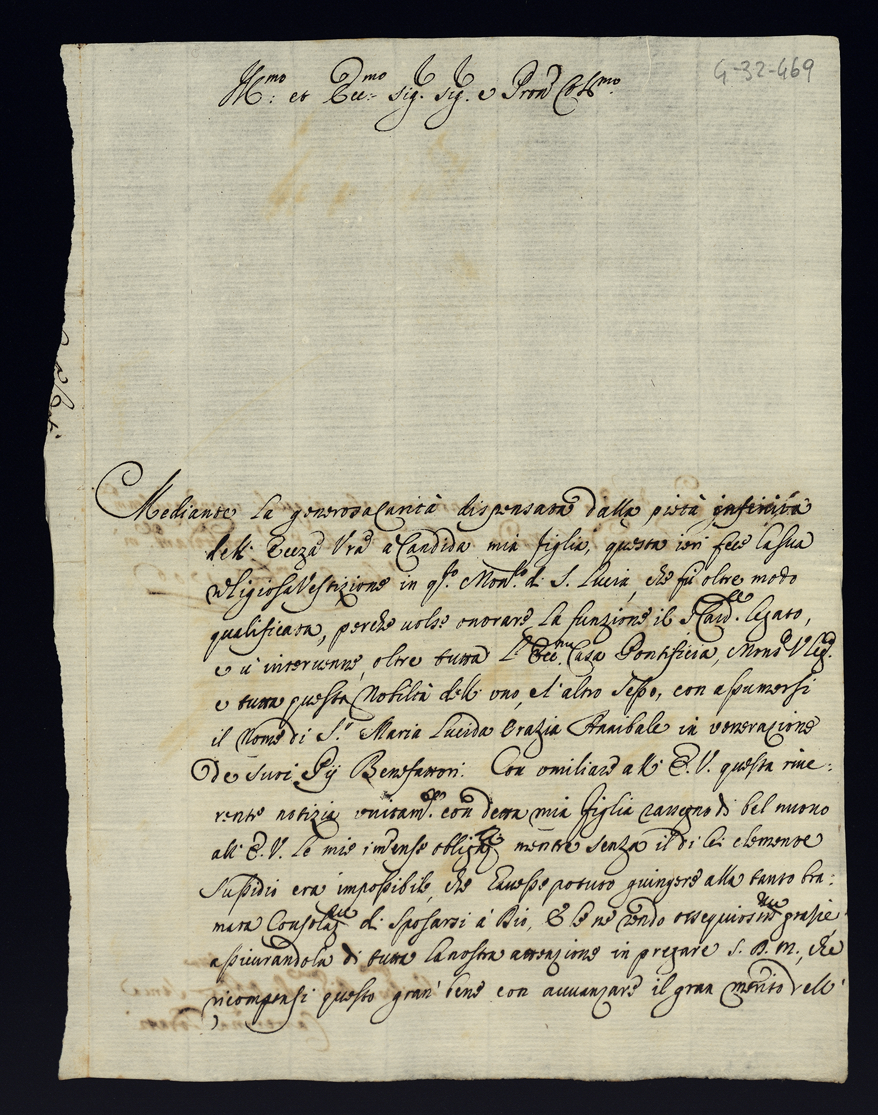 G-32-469
Ill.mo: et Ecc.mo Sig. Sig. e Pron Col.mo
Mediante la generosa Carità dispensata dalla pietà infinita
dell' Ecc.za Vra a Candida mia figlia, questa ieri fece la sua
religiosa Vestizione in q.to Mon.ro di S. Lucia, che fù oltre modo
qualificata, perche volse onorare la funzione il S. Card.le Legato,
e v' intervenne, oltre tutta l' Ecc.ma Casa Pontificia, Mons.r V. Leg.
e tutta questa Nobiltà dell' uno, e l' altro Sesso, con assumersi
il Nome di S.r Maria Lucida Grazia Annibale in venerazione
de suoi Pij Benefattori. Con umiliare all' E.V. questa rive:
rente notizia unitam.te con detta mia figlia rassegno di bel nuovo
all' E.V. le mie immense obbligaz.ni mentre senza il di lei clemente
Sussidio era impossibile, che havesse potuto giungere alla tanto bra:
mata Consolaz.ne di Sposarsi à Dio, E le ne rendo ossequiosiss.me grazie
assicurandola di tutta la nostra attenzione in pregare S. D. M., che
ricompensi questo gran' bene con avvanzare il gran merito dell'